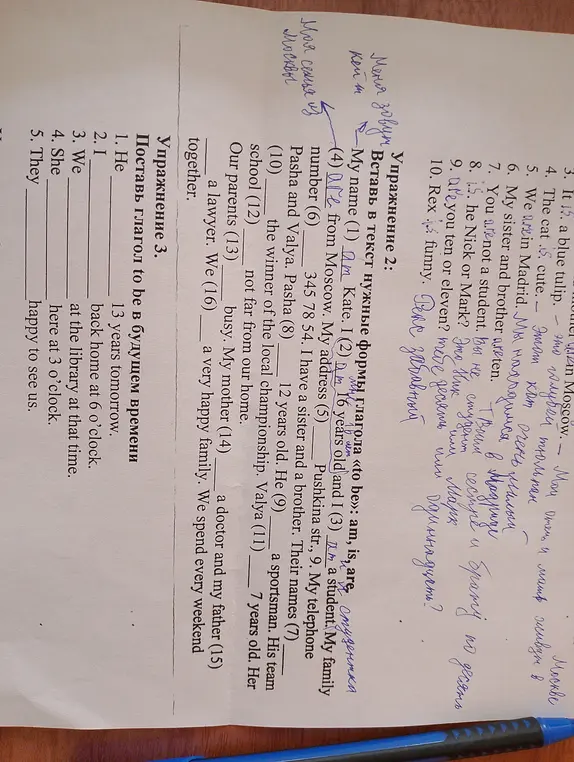 3. It is a blue tulip. - это голубой тюльпан
4. The cat is cute. - Этот кот очень милый
5. We are in Madrid. Мы находимся в Мадриде
6. My sister and brother are ten. Твоим сестре и брату по десять
7. You are not a student. Вы не студент
8. is he Nick or Mark? Это Ник или Марк
9. are you ten or eleven? тебе десять или одиннадцать?
10. Rex is funny. Рекс забавный
Упражнение 2:
Вставь в текст нужные формы глагола «to be»: am, is, are
My name (1) am Kate. I (2) am 16 years old and I (3) am a student. My family
(4) are from Moscow. My address (5) ___ Pushkina str., 9. My telephone
number (6) ___ 345 78 54. I have a sister and a brother. Their names (7) ___
Pasha and Valya. Pasha (8) ___ 12 years old. He (9) ___ a sportsman. His team
(10) ___ the winner of the local championship. Valya (11) ___ 7 years old. Her
school (12) ___ not far from our home.
Our parents (13) ___ busy. My mother (14) ___ a doctor and my father (15)
___ a lawyer. We (16) ___ a very happy family. We spend every weekend
together.
Меня зовут
Кейт
Моя семья из
Москвы
Упражнение 3.
Поставь глагол to be в будущем времени
1. He ___ 13 years tomorrow.
2. I ___ back home at 6 o'clock.
3. We ___ at the library at that time.
4. She ___ here at 3 o'clock.
5. They ___ happy to see us.